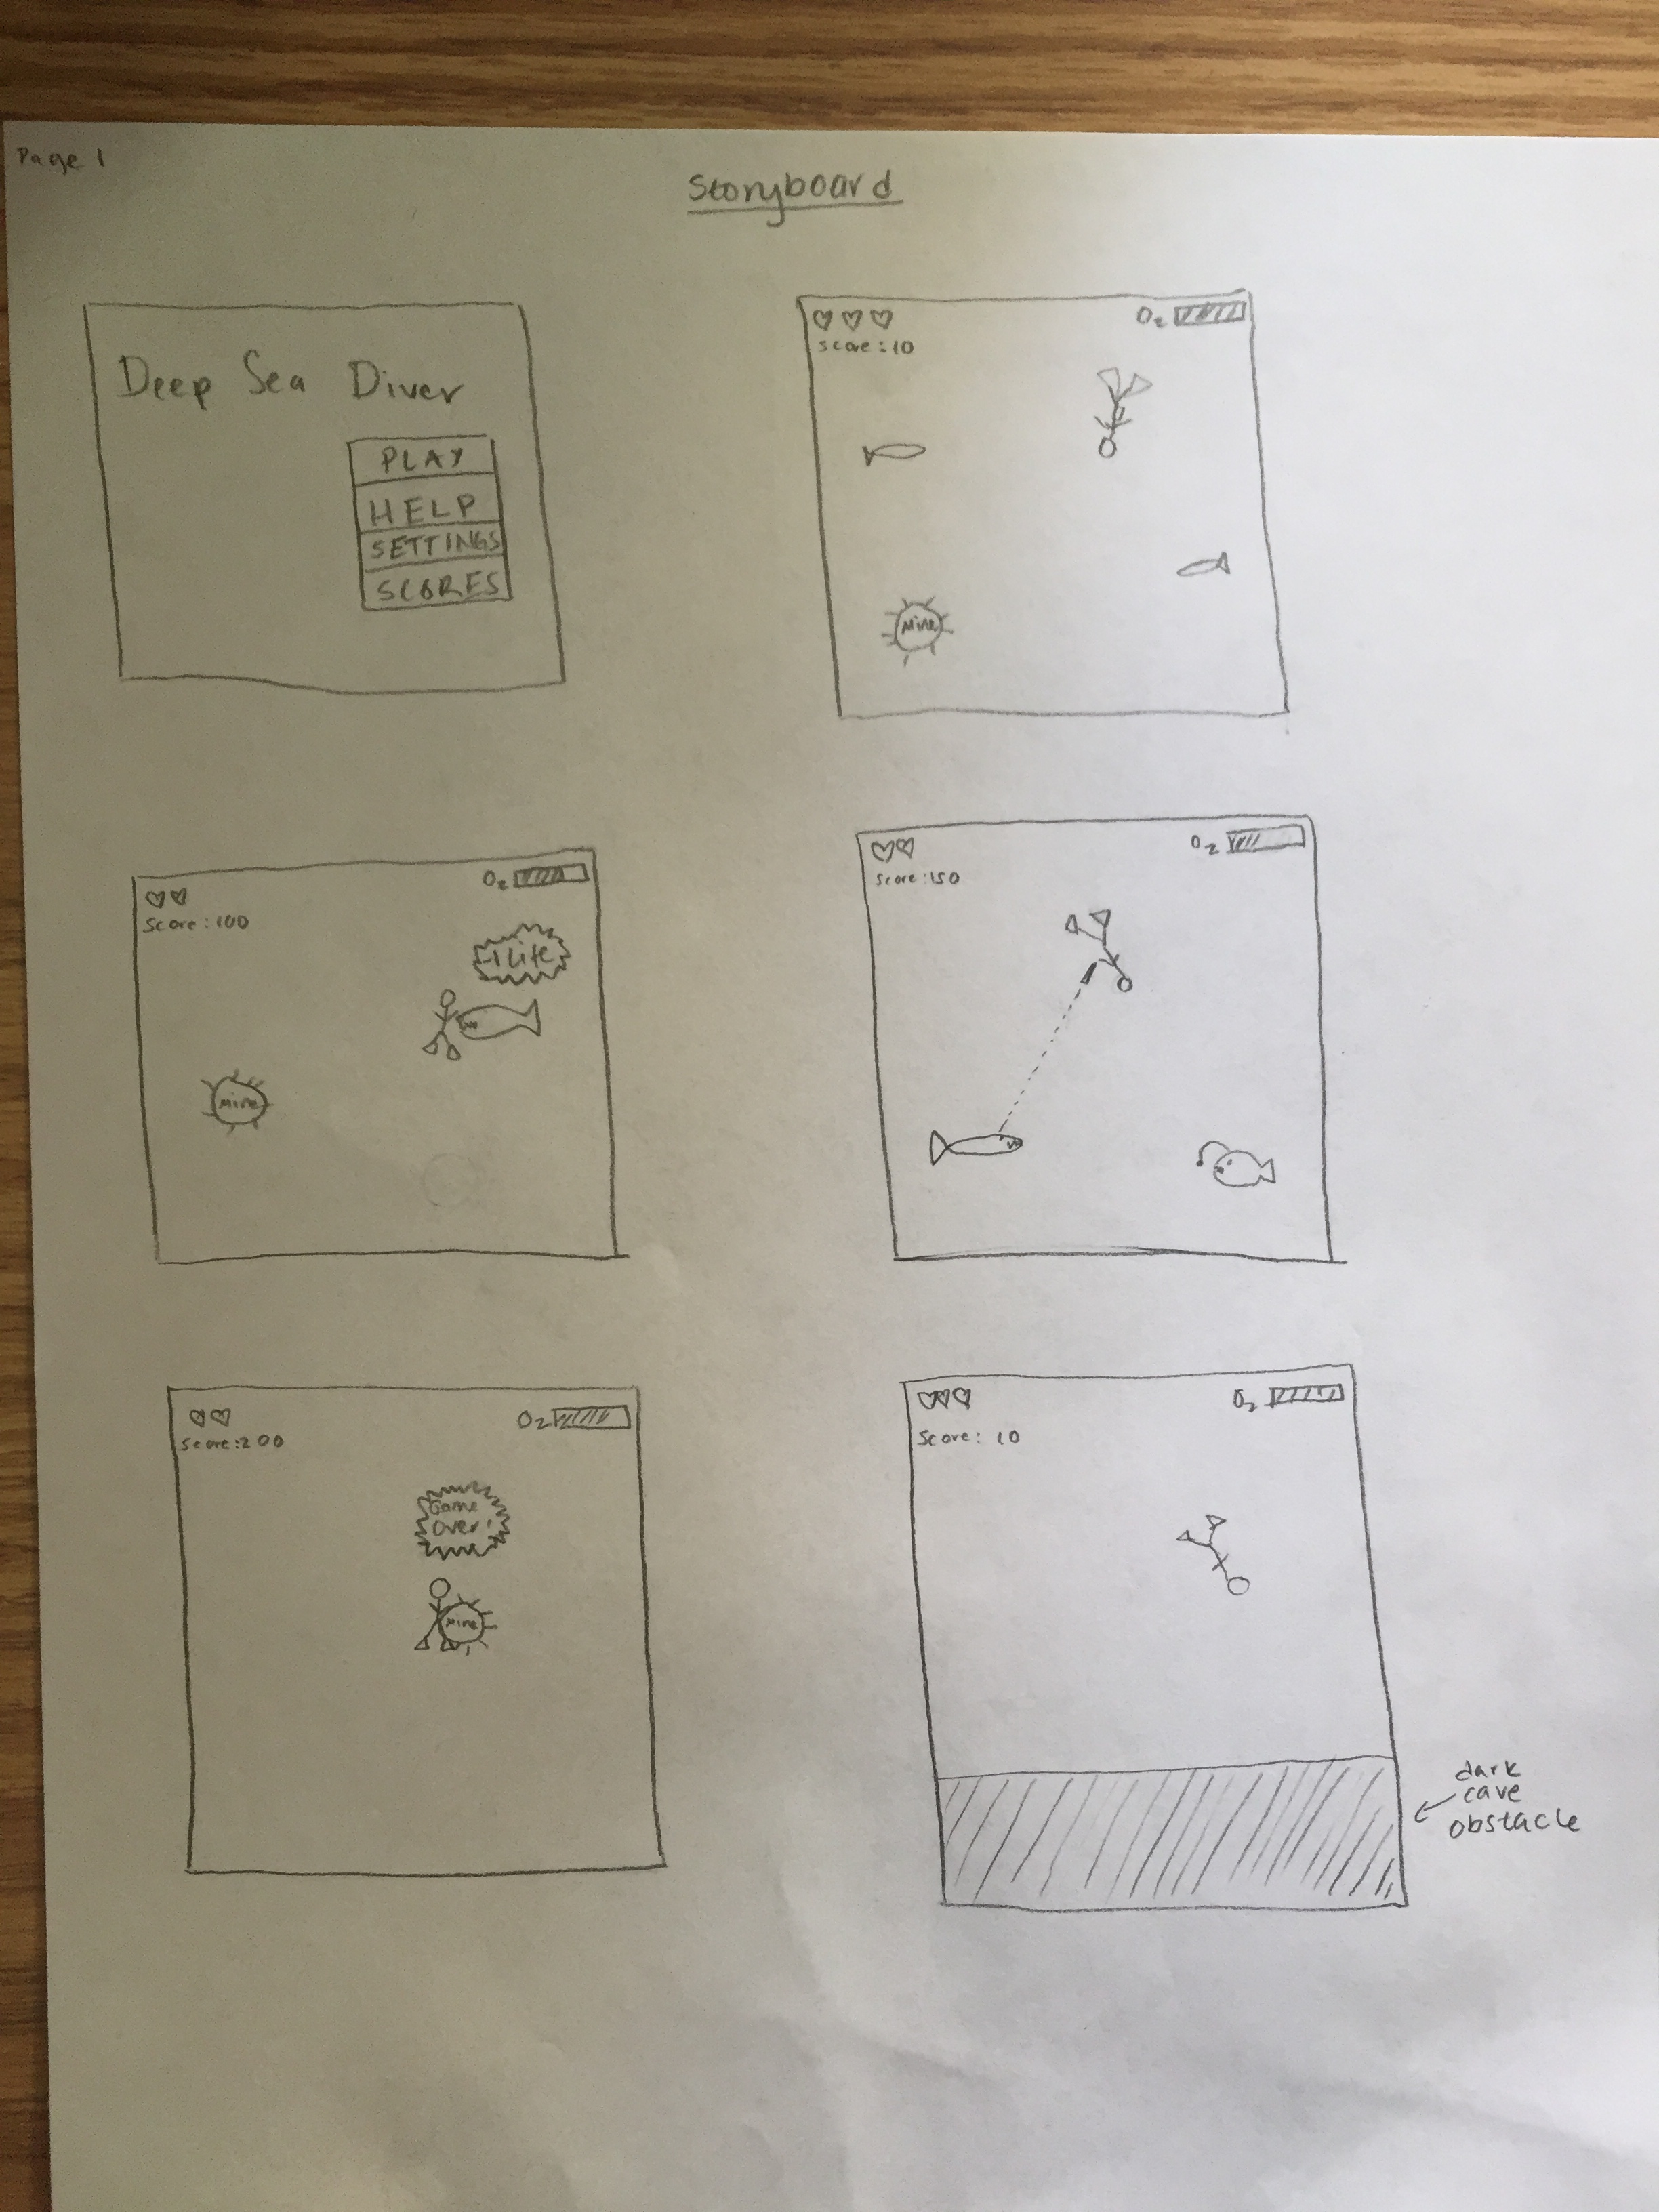 Page 1
Storyboard
Deep Sea Diver
PLAY
HELP
SETTINGS
SCORES
O2
Score: 10
Mine
O2
Score: 100
-1 Life
Mine
O2
Score: 150
O2
Score: 200
Game
Over!
Mine
O2
Score: 10
dark
cave
obstacle